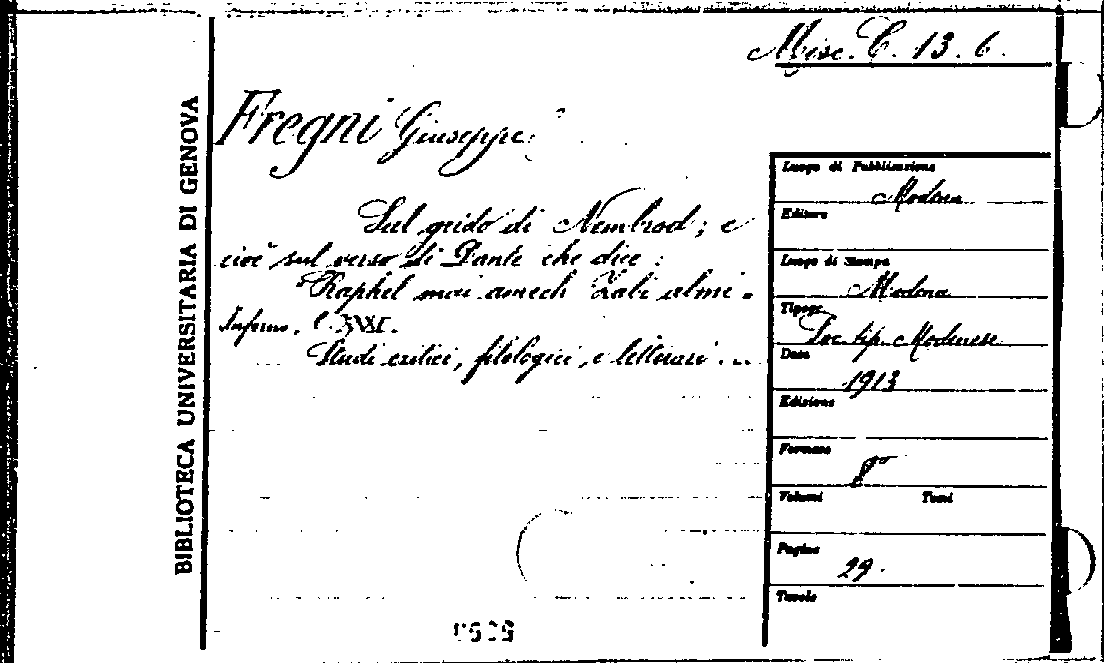 Misc. C. 13. 6.
BIBLIOTECA UNIVERSITARIA DI GENOVA
Fregni Giuseppe
Sul grido di Nembrod; e
cioè sul verso di Dante che dice:
Raphel mai amech Zabi almi.
Inferno. C.
Studi critici, filologici, e letterari...
Luogo di Pubblicazione
Modena
Editore
Luogo di Stampa
Modena
Tipogr.
Soc. tip. Modenese
Data
1913
Edizione
Formato
8°
Volumi Tomi
Pagine
29.
Tavole